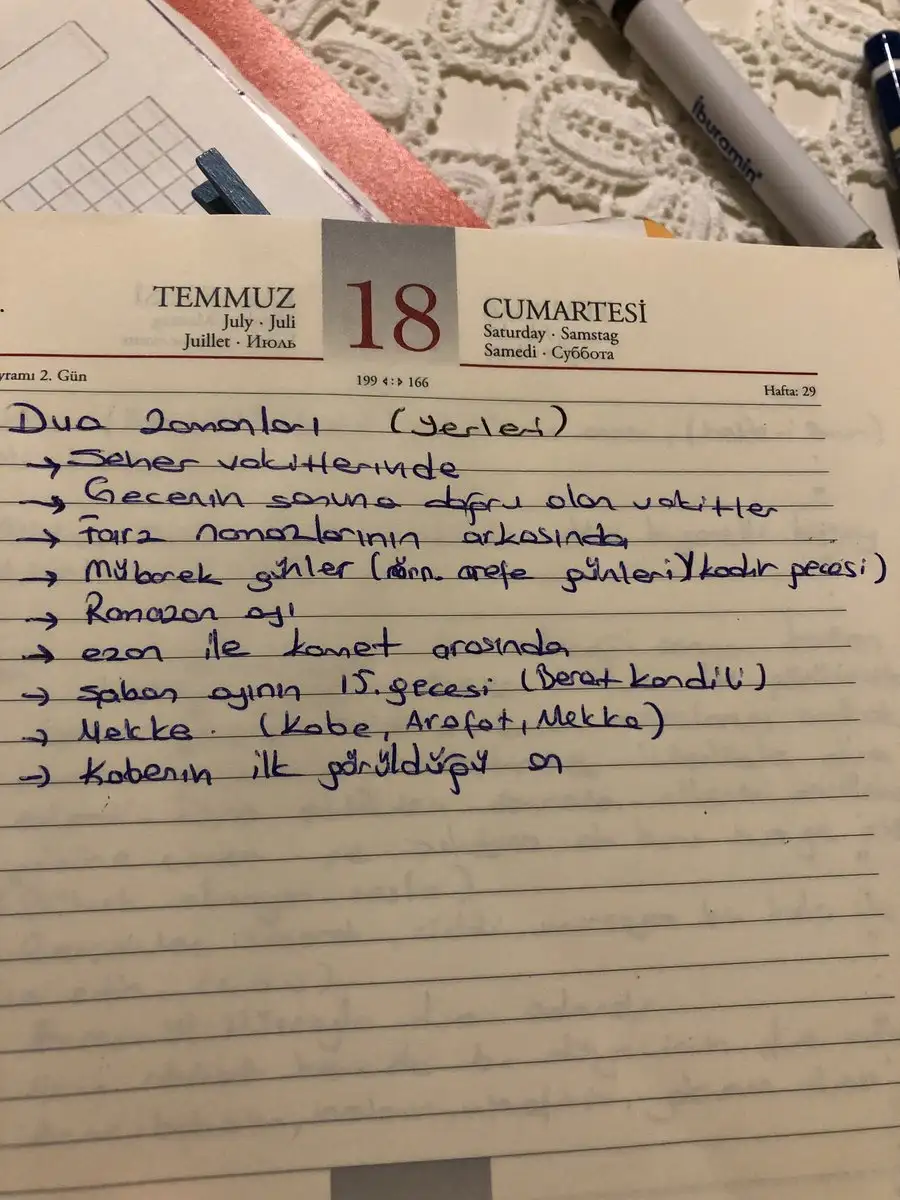 İburamin
TEMMUZ
July · Juli
Juillet · Июль
18
CUMARTESİ
Saturday · Samstag
Samedi · Суббота
yramı 2. Gün
199 166
Hafta: 29
Dua Zamanları (Yerleri)
→ Seher vakitlerinde
→ Gecenin sonuna doğru olan vakitler
→ Farz namazlarının arkasında
→ Mübarek günler (örn. arefe günleri) (kadir gecesi)
→ Ramazan ayı
→ ezan ile kamet arasında
→ şaban ayının 15. gecesi (Berat kandili)
→ Mekke. (Kabe, Arafat, Mekke)
→ Kabenin ilk görüldüğü an